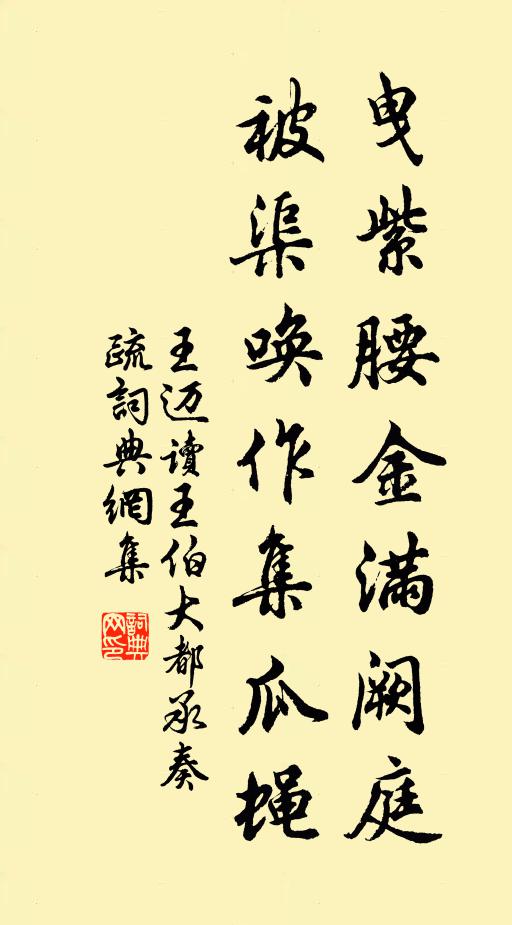 曳紫腰金满阙庭
被渠唤作集瓜蝇
王迈读王伯大都承奏
疏词典网集
词典网印